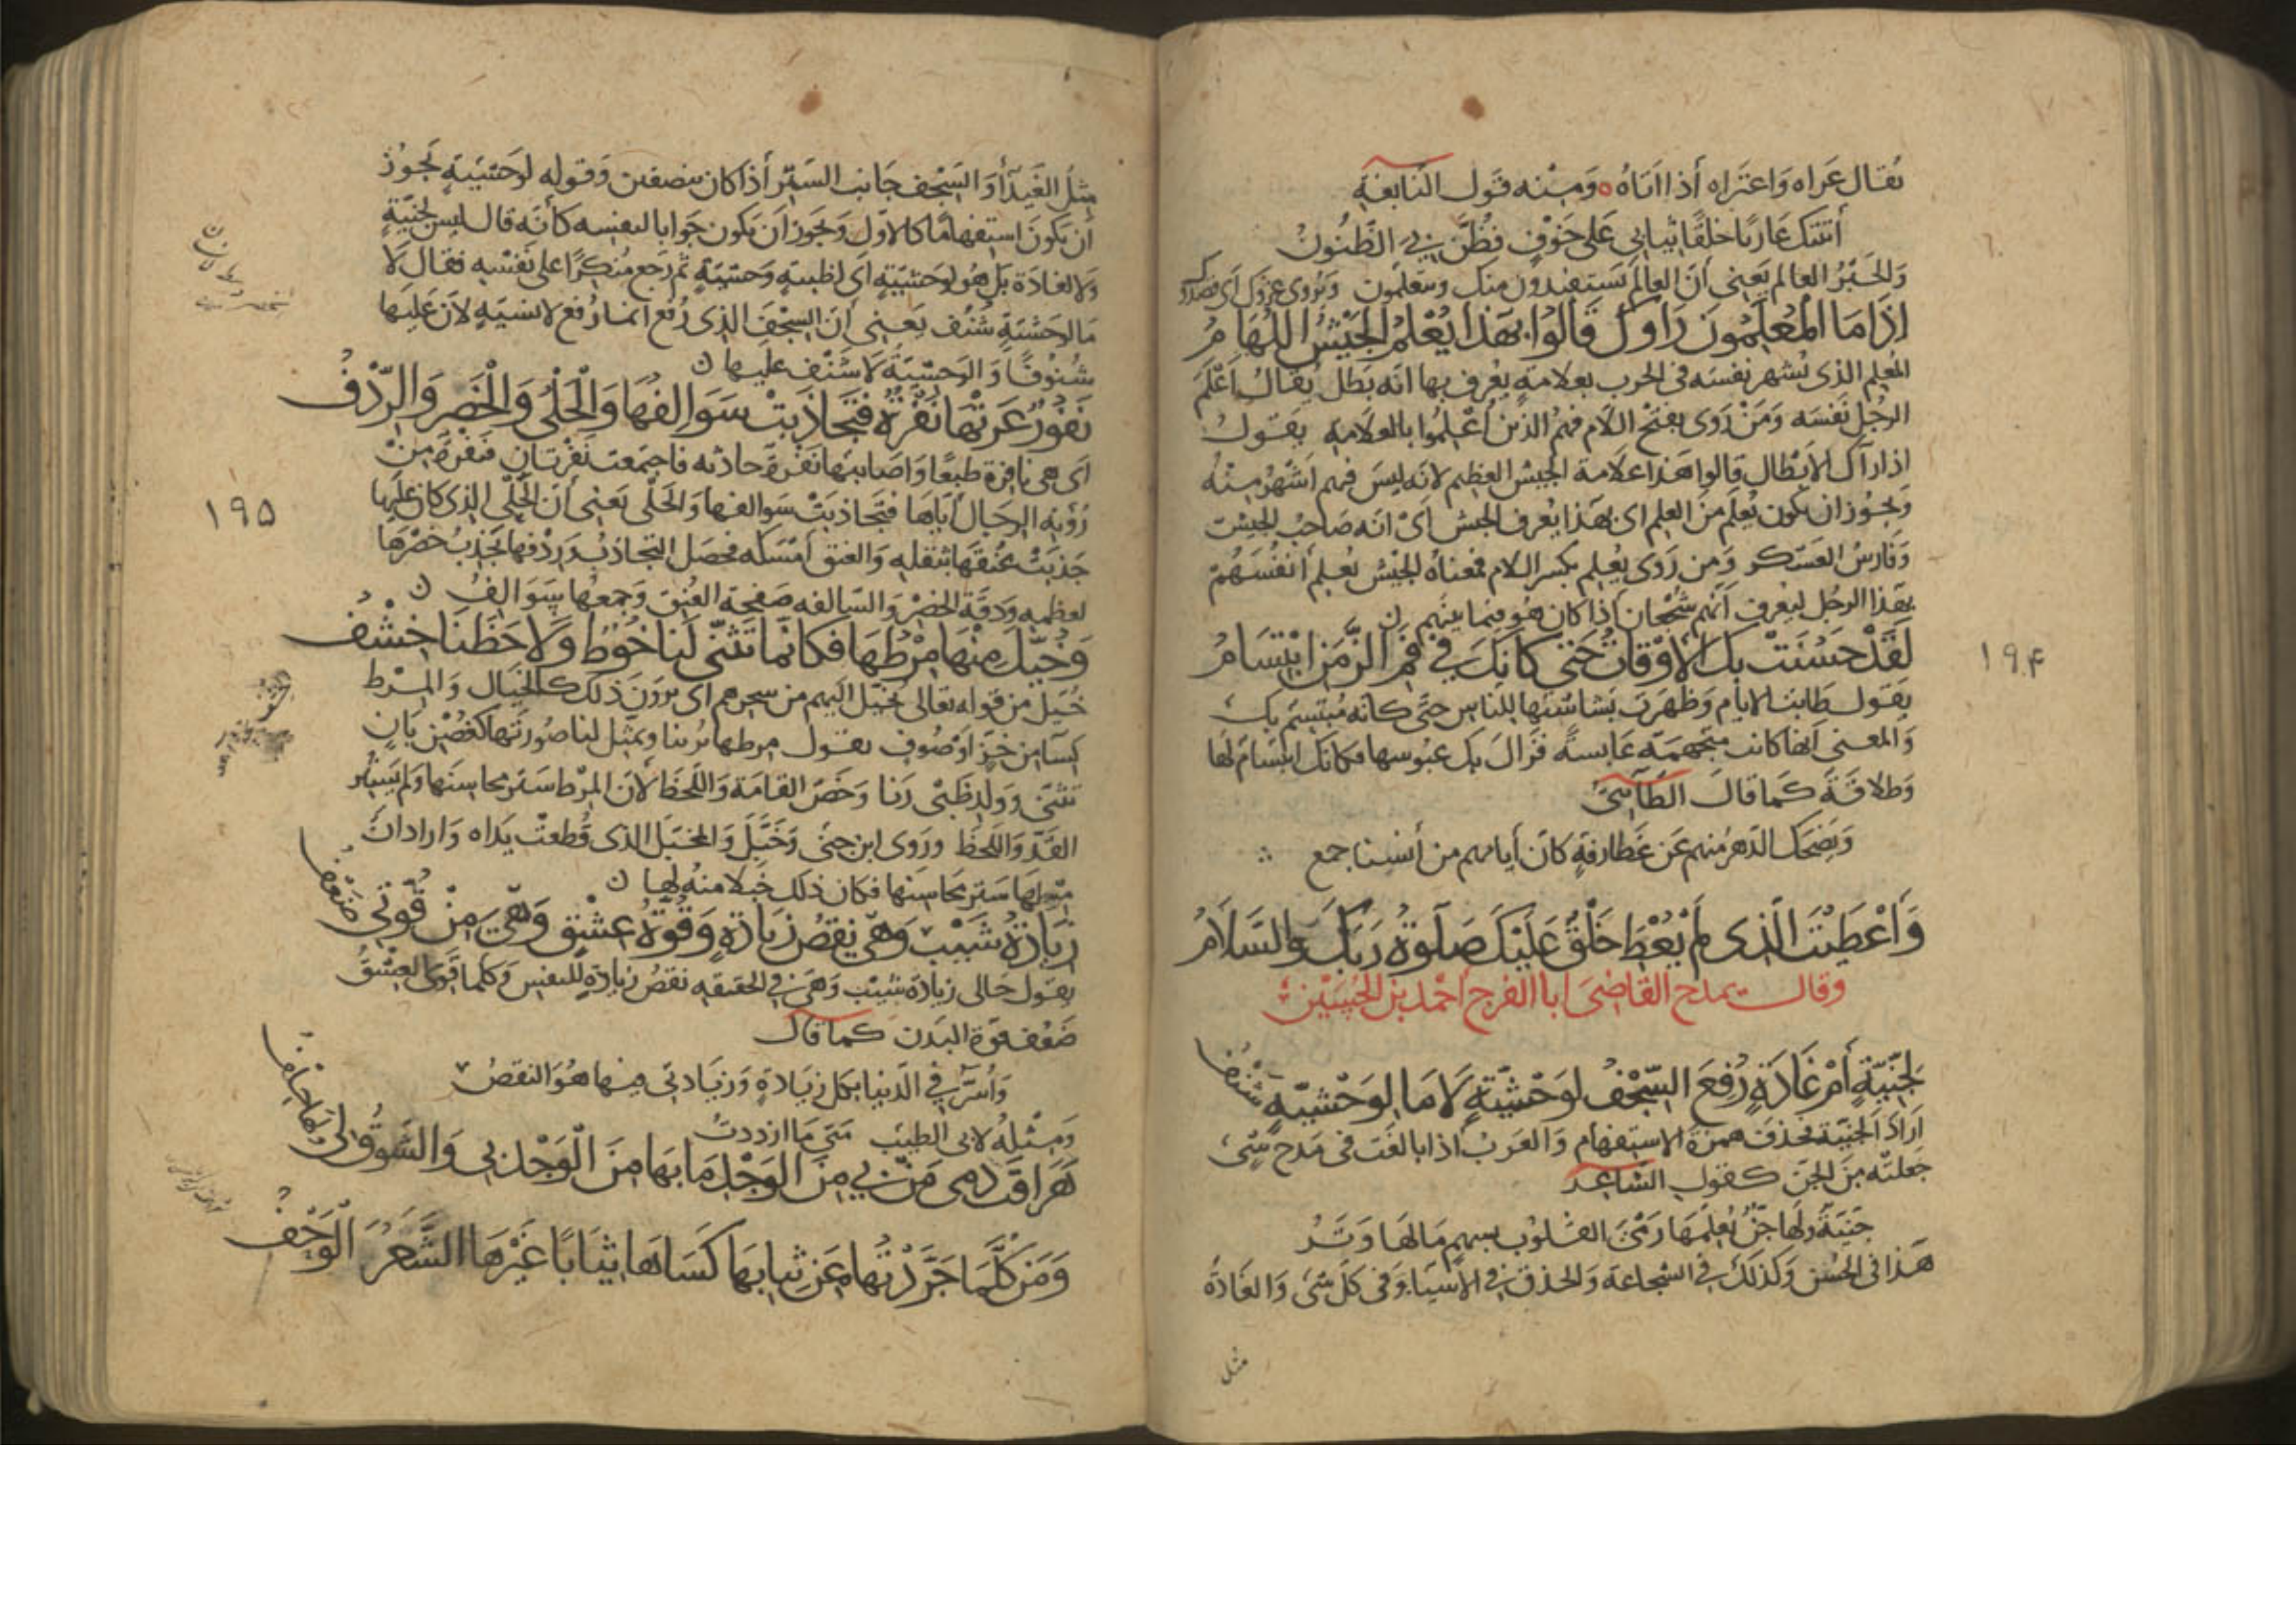 يقال عراه واعتراه أذا اتاه ومنه قول النابغة
أتتك عاريا خلقا ثيابي على خوف فظن بي الظنون
والحبر العالم يعني أن العالم يستفيدون منك ويتعلمون ويروى عزوك أي قصدوك
إِذَا مَا الْمُعْلِمُونَ رَاوكَ قَالُوا بِهَذَا يُعْلَمُ الْجَيْشُ اللُّهَامُ
المعلم الذى يشهر نفسه فى الحرب بعلامة يعرف بها انه بطل يقال أعلم
الرجل نفسه ومن روى بفتح اللام فهم الذين أعلموا بالعلامة يقول
اذا رآك الابطال قالوا هذا علامة الجيش العظيم لانه ليس فيهم اشهر منه
ويجوز ان يكون يعلم من العلم اى بهذا يعرف الجيش اى انه صاحب الجيش
وفارس العسكر ومن روى يعلم بكسر اللام فمعناه الجيش يعلم أنفسهم
بهذا الرجل ليعرف أنهم شجعان أذا كان هو فيما بينهم
لَقَدْ حَسُنَتْ بِكَ الْأَوْقَاتُ حَتى كَانكَ في فَمِ الزَّمَنِ ابْتِسَامُ
يقول طابت الايام وظهرت بشاشتها للناس حتى كانه مبتسم بك
والمعنى انها كانت متجهمة عابسة فزال بك عبوسها فكانك ابتسام لها
وطلاقة كما قال الطآئى
ويضحك الدهر منهم عن غطارفة كان أيامهم من أنسها جمع
وَأَعْطِيْتَ الَّذِى لَمْ يُعْطَ خَلْقٌ عَلَيْكَ صَلَوةُ رَبِّكَ وَالسَّلَامُ
وقال يمدح القاضى ابا الفرج احمد بن الحسين
لِجِنِّيَّةٍ أَمْ غَادَةٍ رُفِعَ السِّجْفُ لِوَحْشِيَّةٍ لَا مَا لِوَحْشِيَّةٍ شَنْفُ
اراد الجنية فحذف همزة الاستفهام والعرب اذا بالغت فى مدح شىء
جعلته من الجن كقول الشاعر
جنية ولها جن يعلمها رمى القلوب بسهم ما لها وتر
هذا فى الحسن وكذلك في الشجاعة والحذق في الاشيا وفى كل شى والغادة
مثل
١٩۴
مثل الغيدآ والسجف جانب الستر أذا كان بنصفين وقوله لوحشية يجوز
ان يكون استفهاما كالاول ويجوز ان يكون جوابا لنفسه كأنه قال ليس لجنية
ولا لغادة بل هو لوحشية اى لظبية وحشية ثم رجع منكرا على نفسه فقال لا
ما لوحشية شنف يعني أن السجف الذى رفع انما رفع لانسية لان عليها
شنوفا والوحشية لا شنف عليها
نَفُورٌ عَرَتْهَا نَفْرَةٌ فَتَجَاذَبَتْ سَوَالِفُهَا وَالْحَلْىُ وَالْخَصْرُ وَالرِّدْفُ
اى هى نافرة طبعا واصابتها نفرة حادثه فاجتمعت نفرتان فنفرة من
رؤية الرجال أياها فتجاذبت سوالفها والحلى يعنى أن الحلى الذى كان عليها
جذبت عنقها بثقله والعنق أمسكه فحصل التجاذب وردفها يجذب خصرها
لعظمه ودقة الخصر والسالفه صفحة العنق وجمعها سوالف
وَخُيِّلَ مِنْهَا مِرْطُهَا فَكَأنَّمَا تَثَنَّى لَنَا خُوْطٌ وَلَاحَظَنَا خِشْفُ
خيل من قوله تعالى يخيل اليهم من سحرهم اى يرون ذلك كالخيال والمرط
كسآ من خز او صوف يقول مرطها يرينا ويمثل لنا صورتها كغصن بان
تثنى وولد ظبى رنا وخص القامة واللحظ لان المرط ستر محاسنها ولم يستر
القد واللحظ وروى ابن جنى وخبل والمخبل الذى قطعت يداه واراد ان
مرطها ستر محاسنها فكان ذلك خبلا منه لها
زِيَادَةُ شَيْبٍ وَهْىَ نَقْصُ زِيَادَةٍ وَقُوَّةُ عِشْقٍ وَهْىَ مِنْ قُوَّتِى ضَعْفُ
يقول حالى زيادة شيب وهى في الحقيقه نقص زيادة للنفس وكلما قوى العشق
ضعف قوة البدن كما قال
وأسر في الدنيا بكل زيادة وزيادتى فيها هو النقص
ومثله لابى الطيب متى ما ازددت
هَرَاقَتْ دَمِى مَنْ بِي مِنَ الْوَجْدِ مَا بِهَا مِنَ الْوَجْدِ بِى وَالشَّوْقُ لِى وَلَهَا حِلْفُ
وَمَنْ كُلَّمَا جَرَّدْتُهَا مِنْ ثِيَابِهَا كَسَاهَا ثِيَابًا غَيْرَهَا الشَّعَرُ الْوَحْفُ
١٩۵